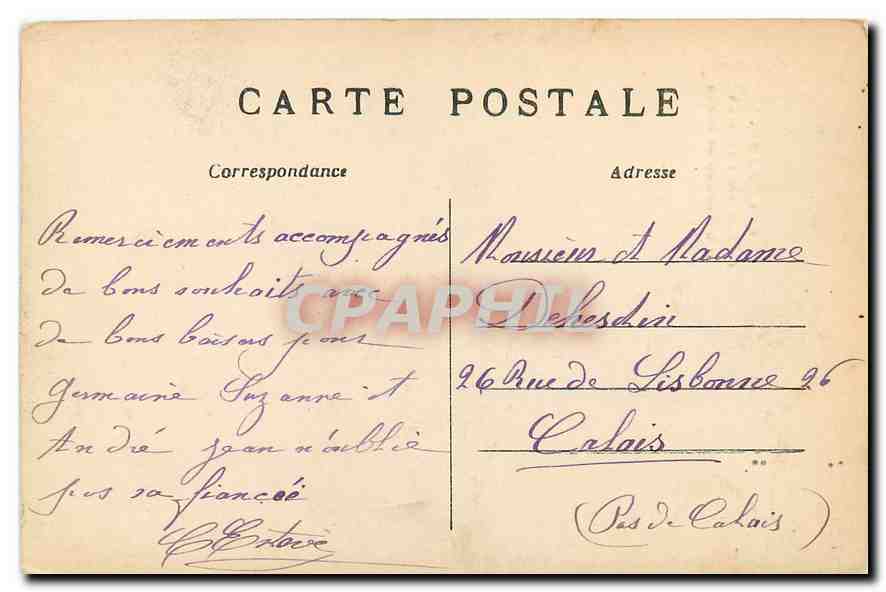 CARTE POSTALE
Correspondance
Remerciements accompagnés
de bons souhaits avec
de bons baisers pour
Germaine Suzanne et
André Jean n'oublie
pas sa fiancée
Adresse
Monsieur et Madame
Dehesdin
26 Rue de Lisbonne 26
Calais
(Pas de Calais)
CPAPHIL